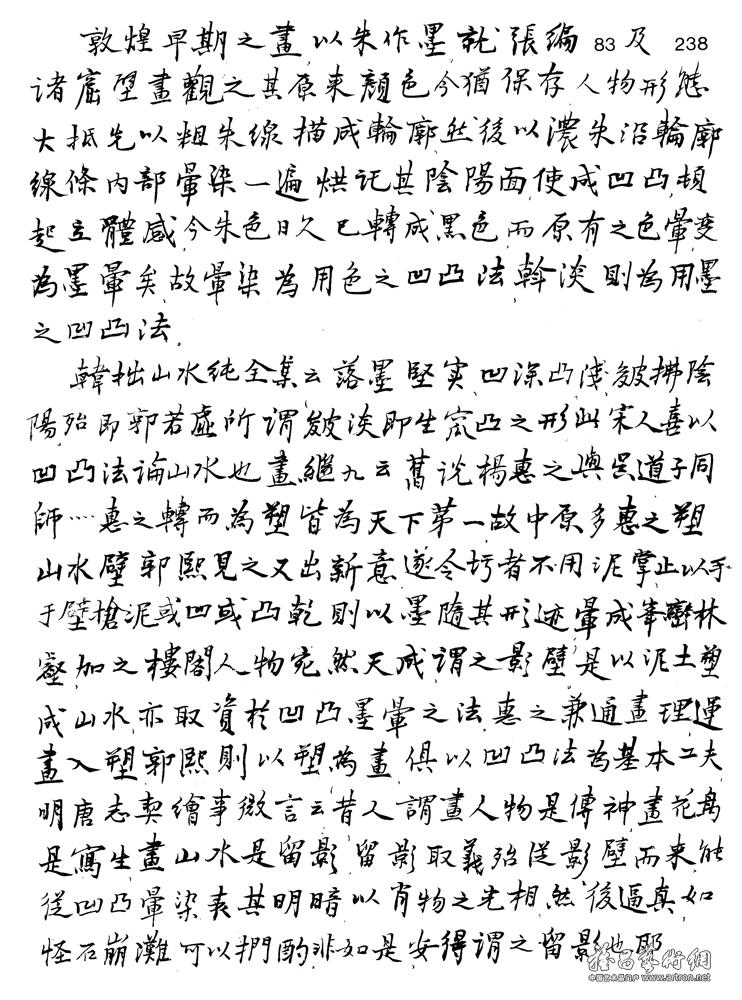 敦煌早期之畫,以朱作墨,就張編 83 及 238
諸窟壁畫觀之,其原来顏色今猶保存,人物形態
大抵先以粗朱線描成輪廓,然後以濃朱沿輪廓
線條內部暈染一遍,烘託其陰陽面,使成凹凸,頓
起立體感,今朱色日久,已轉成黑色,而原有之色暈变
為墨暈矣,故暈染為用色之凹凸法,斡淡則為用墨
之凹凸法.
韓拙山水純全集云落墨堅实,凹深凸淺,皴拂陰
陽,殆即郭若虛所謂皴淡即生窊凸之形,此宋人喜以
凹凸法論山水也,畫繼九云舊说楊惠之與吳道子同
師…惠之轉而為塑,皆為天下第一,故中原多惠之塑
山水壁,郭熙見之,又出新意,遂令圬者不用泥掌,止以手
于壁搶泥,或凹或凸,乾則以墨隨其形迹,暈成峯巒林
壑,加之樓閣人物,宛然天成,謂之影壁,是以泥土塑
成山水,亦取資於凹凸墨暈之法,惠之兼通畫理,運
畫入塑,郭熙則以塑為畫,俱以凹凸法為基本工夫,
明唐志契繪事微言云昔人謂畫人物是傳神,畫花鳥
是寫生,畫山水是留影,留影取義殆從影壁而来,能
從凹凸暈染表其明暗,以肖物之光相,然後逼真,如
怪石崩灘,可以捫酌,非如是,安得謂之留影也耶
雅昌藝術網
中国艺术品门户 www.artron.net